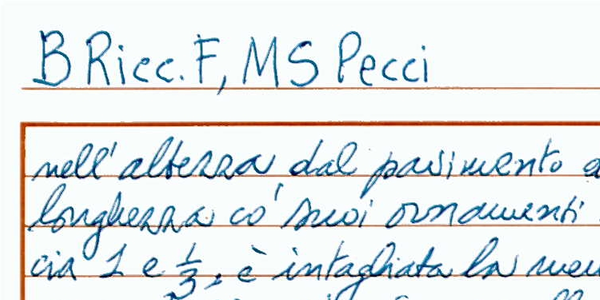 B Ricc. F, MS Pecci
nell'altezza dal pavimento
longhezza co' suoi ornamenti
cia 1 e 1/3, è intagliata la